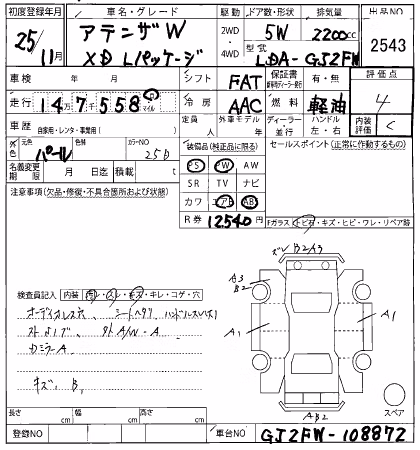 初度登録年月 車名・グレード 駆動 ドア数・形状 排気量 出品NO
25/11月 アテンザW 2WD 5W 2200cc 2543
XD Lパッケージ 4WD 型式 LDA-GJ2FW
車検 年 月 シフト FAT 保証書 有・無 評価点
走行 14万7558 マイル 冷房 AAC 燃料 軽油 4
車歴 自家用・レンタ・事業用( ) 定員 人 外車モデル 年 ディーラー 並行 ハンドル 左・右 内装評価 C
外色 元色 パール 色替 カラーNO 25D 装備品(純正品に限る) セールスポイント(正常に作動するもの)
名義変更期限 月 日迄 積載 t PS PW AW
注意事項(欠品・修復・不具合箇所および状態) SR TV ナビ
カワ エアB AB
R券 12540円 Fガラス・トビ石・キズ・ヒビ・ワレ・リペア跡
ズレ B2A3
A3
B2
検査員記入 内装 汚レ・スレ・キズ・キレ・コゲ・穴
オーディオレス穴 シートヘタリ ハンドルスレハズレ
A1 A1
外A/W・A
カミラーA
キズ、B、
AB2
スペア
長さ cm 幅 cm 高さ cm
登録NO 車台NO GJ2FW-108872